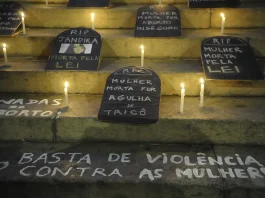 MULHER
MORTA POR
ABORTO
INSEGURO
RIP
JANDIRA
MORTA PELA
LEI
RIP
MULHER
MORTA PELA
LEI
MULHER
MORTA POR
AGULHA
DE
TRICÔ
NADAS
ABORTO!
BASTA DE VIOLÊNCIA
CONTRA AS MULHER